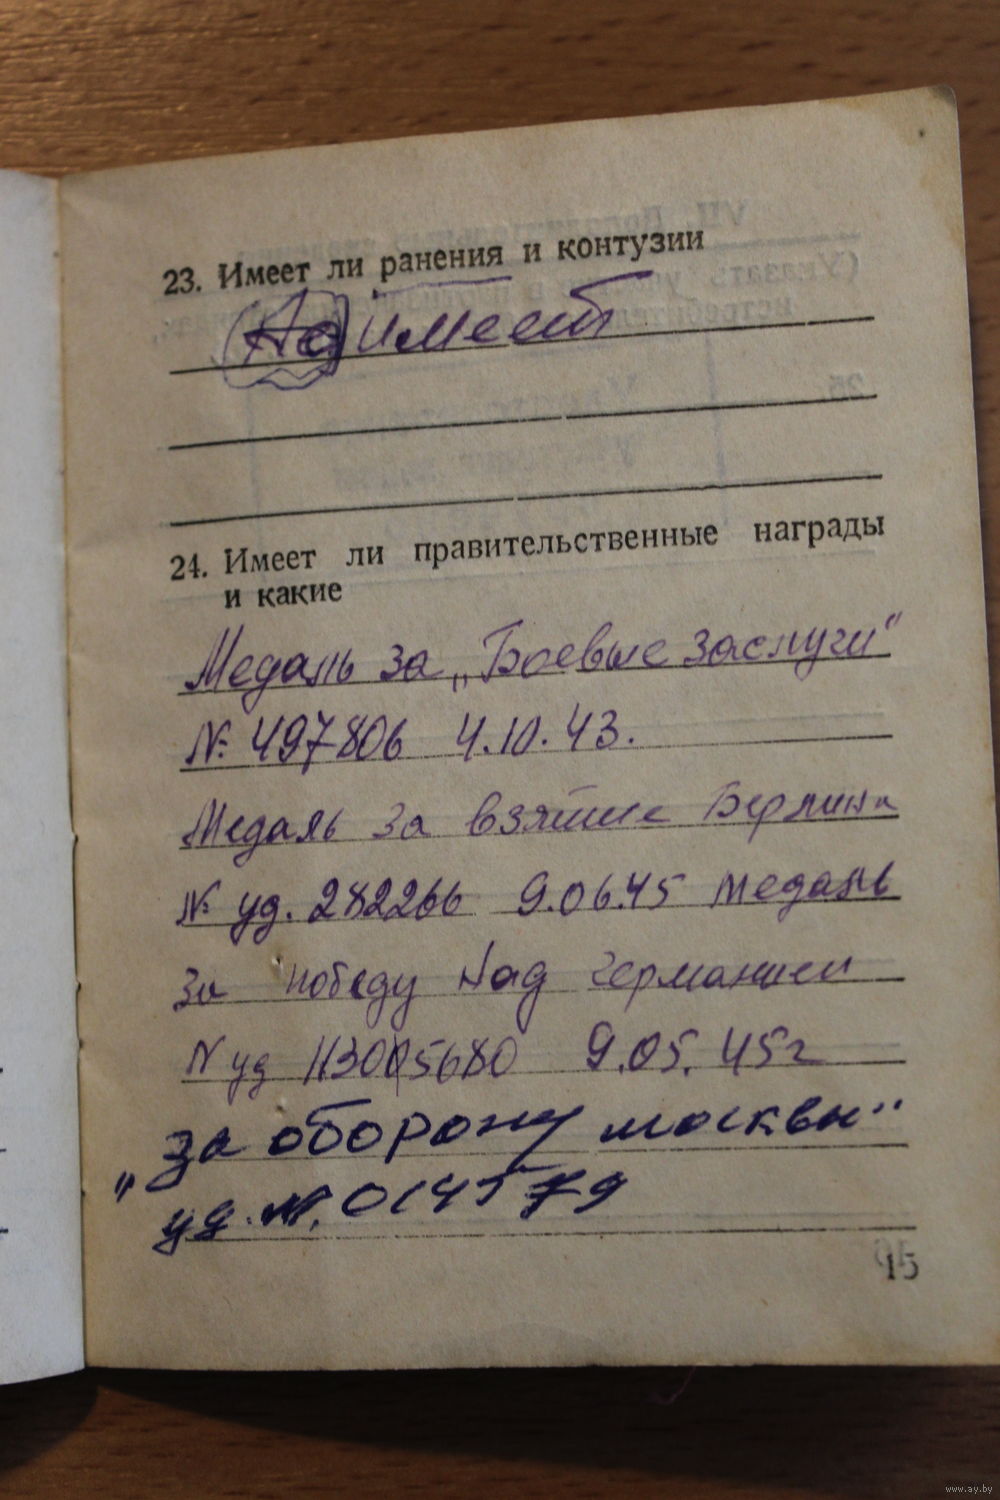 23. Имеет ли ранения и контузии
имеет
24. Имеет ли правительственные награды
и какие
Медаль за „Боевые заслуги"
№ 497806 4.10.43.
Медаль за взятие Берлина
№ уд. 282266 9.06.45 медаль
за победу над Германией
N уд 5680 9.05.45г
„за оборону москвы"
уд. №.
15
www.ay.by